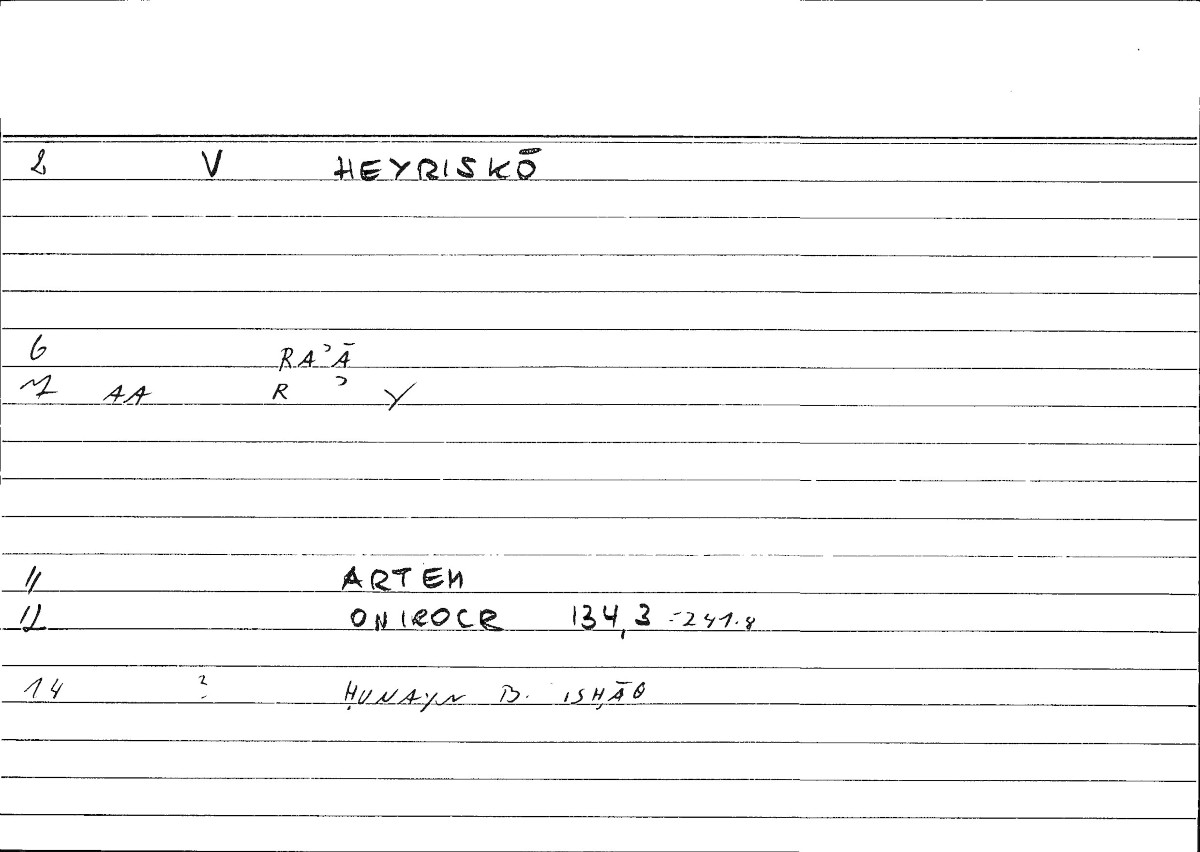 2 V HEYRISKŌ
6 RAʾĀ
7 AA R ʾ Y
11 ARTEM
12 ONIROCR 134,3 = 241.8
14 ? ḤUNAYN B. ISḤĀQ